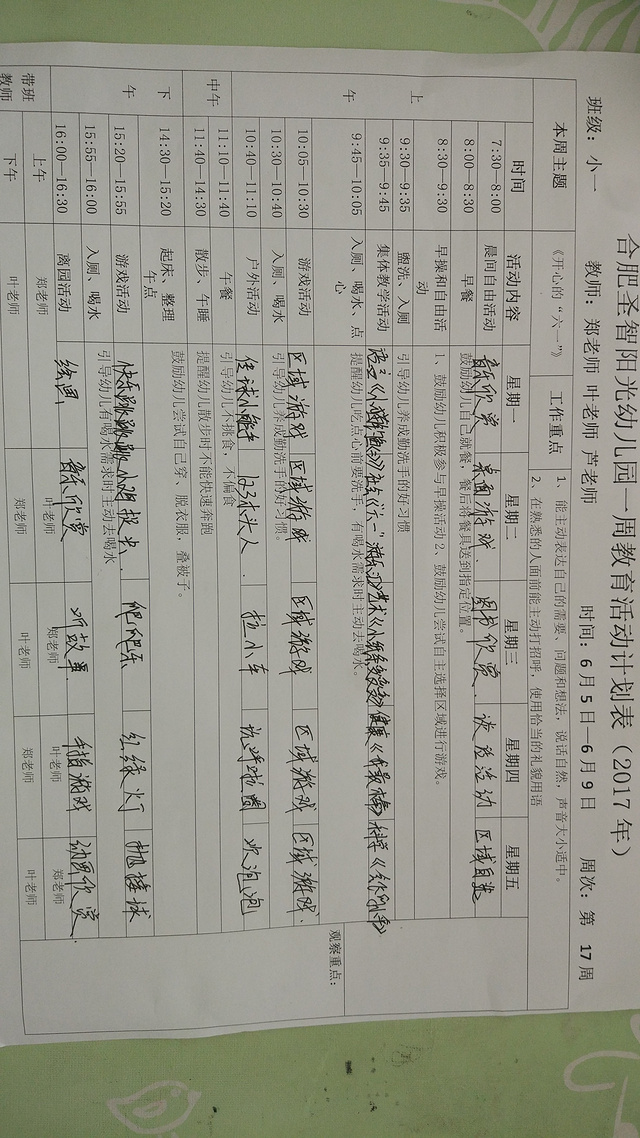 合肥圣智阳光幼儿园一周教育活动计划表（2017年）
班级：小一 教师：郑老师 叶老师 芦老师 时间：6月5日—6月9日 周次：第17周
本周主题 《开心的“六一”》 工作重点 1、能主动表达自己的需要、问题和想法，说话自然，声音大小适中。
2、在熟悉的人面前能主动打招呼，使用恰当的礼貌用语
时间 活动内容 星期一 星期二 星期三 星期四 星期五
上午
7:30—8:00 晨间自由活动 音乐欣赏 桌面游戏 图书欣赏 谈话活动 区域自选
8:00—8:30 早餐 鼓励幼儿自己就餐，餐后将餐具送到指定位置。
8:30—9:30 早操和自由活动 1、鼓励幼儿积极参与早操活动2、鼓励幼儿尝试自主选择区域进行游戏。
9:30—9:35 盥洗、入厕 引导幼儿养成勤洗手的好习惯
9:35—9:45 集体教学活动 语言 社会《“六一”游乐 艺术 健康 科学
9:45—10:05 入厕、喝水、点心 提醒幼儿吃点心前要洗手，有喝水需求时主动去喝水。
观察重点：
10:05—10:30 游戏活动 区域游戏 区域游戏 区域游戏 区域游戏 区域游戏
10:30—10:40 入厕、喝水 引导幼儿养成勤洗手的好习惯。
10:40—11:10 户外活动 木头人 拉小车 吹泡泡
中午
11:10—11:40 午餐 引导幼儿不挑食，不偏食
11:40—14:30 散步、午睡 提醒幼儿散步时不能快速奔跑
下午
14:30—15:20 起床、整理午点 鼓励幼儿尝试自己穿、脱衣服，叠被子。
15:20—15:55 游戏活动 爬爬乐 红绿灯 抛接球
15:55—16:00 入厕、喝水 引导幼儿有喝水需求时主动去喝水
16:00—16:30 离园活动 绘画 音乐欣赏 听故事 手指游戏 动画欣赏
带班教师 上午 郑老师 叶老师 郑老师 叶老师 郑老师
下午 叶老师 郑老师 叶老师 郑老师 叶老师